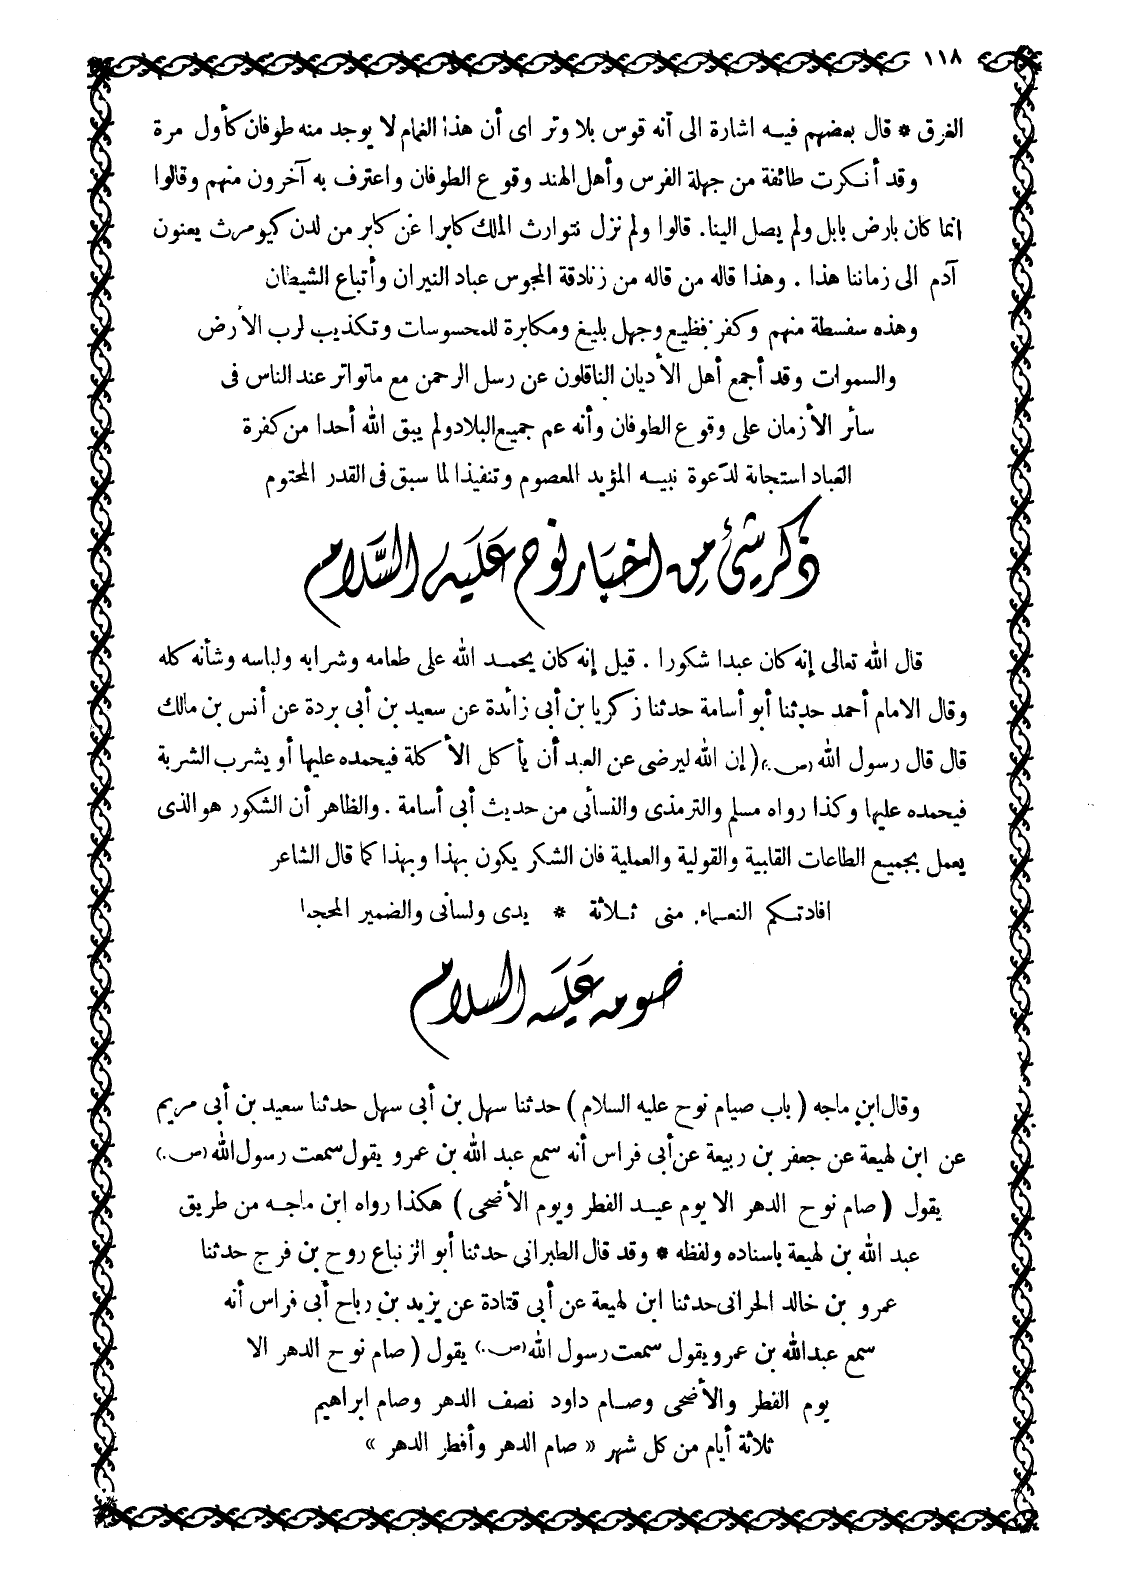 ١١٨
الغرق * قال بعضهم فيه اشارة الى أنه قوس بلا وتر اى أن هذا الغمام لا يوجد منه طوفان كأول مرة
وقد أنكرت طائفة من جهلة الفرس وأهل الهند وقوع الطوفان واعترف به آخرون منهم وقالوا
انما كان بارض بابل ولم يصل الينا. قالوا ولم نزل نتوارث الملك كابرا عن كابر من لدن كيومرث يعنون
آدم الى زماننا هذا . وهذا قاله من قاله من زنادقة المجوس عباد النيران وأتباع الشيطان
وهذه سفسطة منهم وكفر فظيع وجهل بليغ ومكابرة للمحسوسات وتكذيب لرب الأرض
والسموات وقد أجمع أهل الأديان الناقلون عن رسل الرحمن مع ماتواتر عند الناس فى
سائر الأزمان على وقوع الطوفان وأنه عم جميع البلاد ولم يبق الله أحدا من كفرة
العباد استجابة لدعوة نبيه المؤيد المعصوم وتنفيذا لما سبق فى القدر المحتوم
ذكر شئ من اخبار نوح عليه السلام
قال الله تعالى إنه كان عبدا شكورا . قيل إنه كان يحمد الله على طعامه وشرابه ولباسه وشأنه كله
وقال الامام أحمد حدثنا أبو أسامة حدثنا زكريا بن أبى زائدة عن سعيد بن أبى بردة عن أنس بن مالك
قال قال رسول الله (ص.) ( إن الله ليرضى عن العبد أن يأكل الأكلة فيحمده عليها أو يشرب الشربة
فيحمده عليها وكذا رواه مسلم والترمذى والنسائى من حديث أبى أسامة . والظاهر أن الشكور هو الذى
يعمل بجميع الطاعات القلبية والقولية والعملية فان الشكر يكون بهذا وبهذا كما قال الشاعر
افادتكم النعماء منى ثلاثة * يدى ولسانى والضمير المحجبا
صومه عليه السلام
وقال ابن ماجه ( باب صيام نوح عليه السلام ) حدثنا سهل بن أبى سهل حدثنا سعيد بن أبى مريم
عن ابن لهيعة عن جعفر بن ربيعة عن أبى فراس أنه سمع عبد الله بن عمرو يقول سمعت رسول الله (ص.)
يقول ( صام نوح الدهر الا يوم عيد الفطر ويوم الأضحى ) هكذا رواه ابن ماجه من طريق
عبد الله بن لهيعة باسناده ولفظه * وقد قال الطبرانى حدثنا أبو الزنباع روح بن فرج حدثنا
عمرو بن خالد الحرانى حدثنا ابن لهيعة عن أبى قتادة عن يزيد بن رباح أبى فراس أنه
سمع عبد الله بن عمرو يقول سمعت رسول الله (ص.) يقول ( صام نوح الدهر الا
يوم الفطر والأضحى وصام داود نصف الدهر وصام ابراهيم
ثلاثة أيام من كل شهر « صام الدهر وأفطر الدهر »